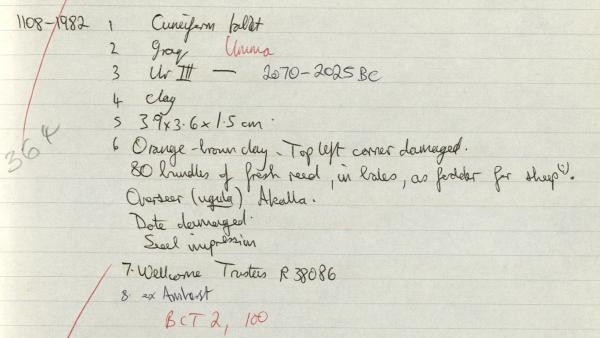 1108-1982 1 Cuneiform tablet
2 Iraq Umma
3 Ur III — 2070-2025 BC
4 clay
5 3.9 x 3.6 x 1.5 cm.
6 Orange-brown clay. Top left corner damaged.
80 bundles of fresh reed, in bales, as fodder for sheep(?).
Overseer (ugula) Akalla.
Date damaged.
Seal impression
364
7. Wellcome Trustees R 38086
8. ex Amherst
BCT 2, 100